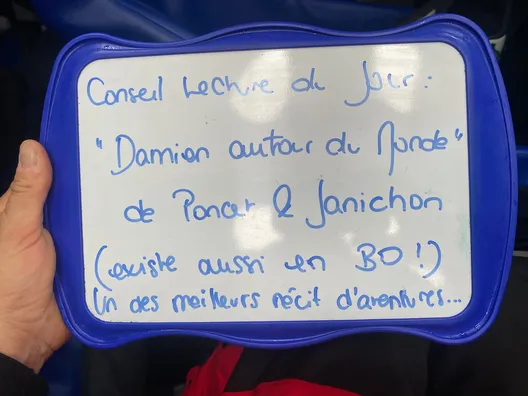 Conseil Lecture du Jour :
"Damien autour du Monde"
de Poncet & Janichon
(existe aussi en BD !)
Un des meilleurs récit d'aventures...